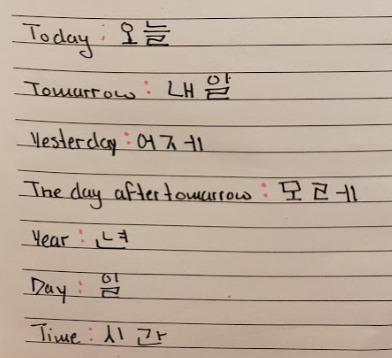 Today : 오늘
Tomarrow :내일
Yesterday : 어제
The day after tomarrow : 모르게
Year : 년
Day : 일
Time : 시간